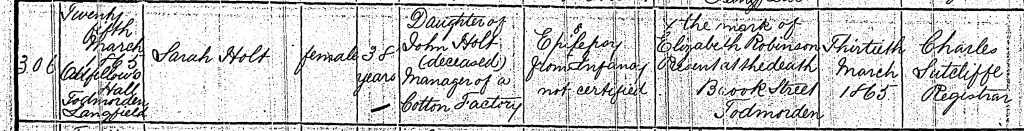 306
Twenty
fifth
March
1865
Oddfellows
Hall
Todmorden
Langfield
Sarah Holt
female
38
years
Daughter of
John Holt
(deceased)
Manager of a
Cotton Factory
Epilepsy
from Infancy
not certified
X the mark of
Elizabeth Robinson
Present at the death
Brook Street
Todmorden
Thirtieth
March
1865
Charles
Sutcliffe
Registrar